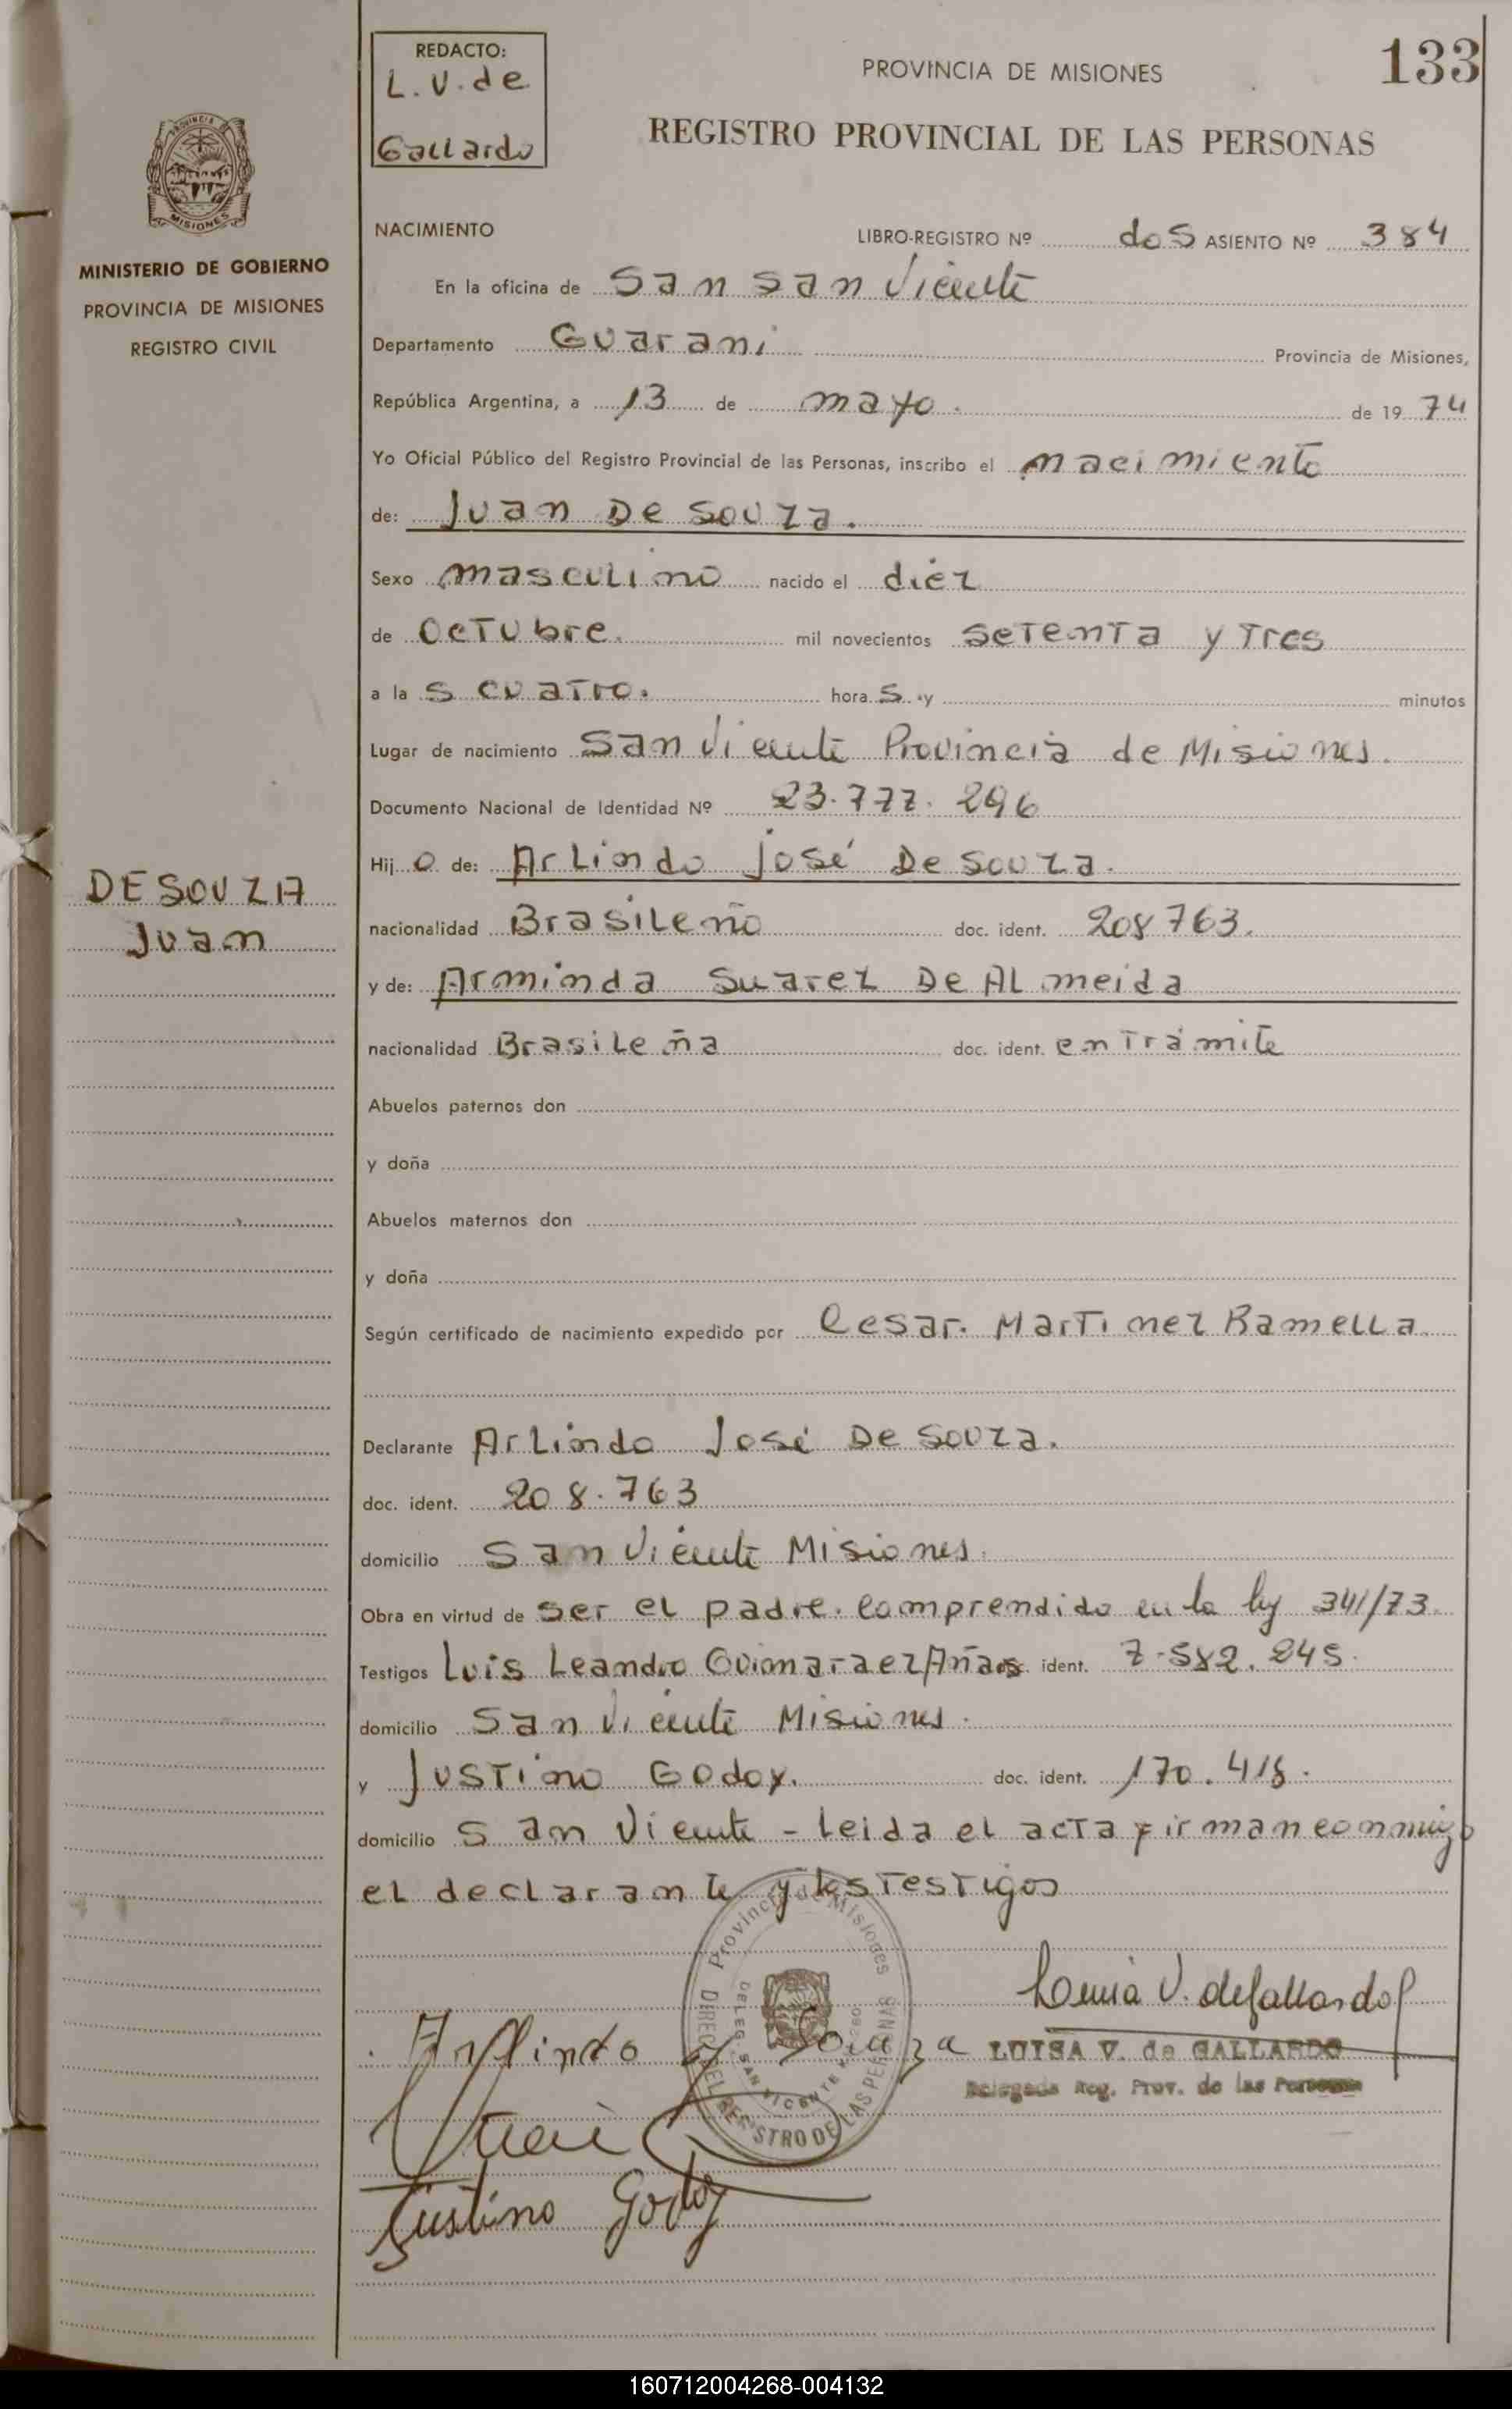 133
REDACTO:
L. V. de
Gallardo
PROVINCIA DE MISIONES
REGISTRO PROVINCIAL DE LAS PERSONAS
PROVINCIA
MISIONES
MINISTERIO DE GOBIERNO
PROVINCIA DE MISIONES
REGISTRO CIVIL
DE SOUZA
Juan
NACIMIENTO LIBRO-REGISTRO Nº dos ASIENTO Nº 384
En la oficina de San san Vicente
Departamento Guarani Provincia de Misiones,
República Argentina, a 13 de mayo. de 19 74
Yo Oficial Público del Registro Provincial de las Personas, inscribo el nacimiento
de: Juan De Souza.
Sexo masculino nacido el diez
de Octubre. mil novecientos setenta y tres
a la s cuatro. hora s y minutos
Lugar de nacimiento San Vicente Provincia de Misiones.
Documento Nacional de Identidad Nº 23.777.296
Hij o de: Arlindo José De Souza.
nacionalidad Brasileño doc. ident. 208763.
y de: Arminda Suarez De Almeida
nacionalidad Brasileña doc. ident. en trámite
Abuelos paternos don
y doña
Abuelos maternos don
y doña
Según certificado de nacimiento expedido por Cesar. Martinez Ramella.
Declarante Arlindo José De Souza.
doc. ident. 208.763
domicilio San Vicente Misiones.
Obra en virtud de ser el padre. comprendido en la ley 341/73.
Testigos Luis Leandro Guimaraez ident. 7.582.245.
domicilio San Vicente Misiones.
y Justino Godoy. doc. ident. 170.418.
domicilio San Vicente - leida el acta firman conmigo
el declarante y los testigos
Provincia de Misiones
DIREC. DEL REGISTRO DE LAS PERSONAS
DELEG. SAN VICENTE
Luisa V. de Gallardo
LUISA V. de GALLARDO
Delegada Reg. Prov. de las Personas
Arlindo Souza
Justino Godoy
160712004268-004132